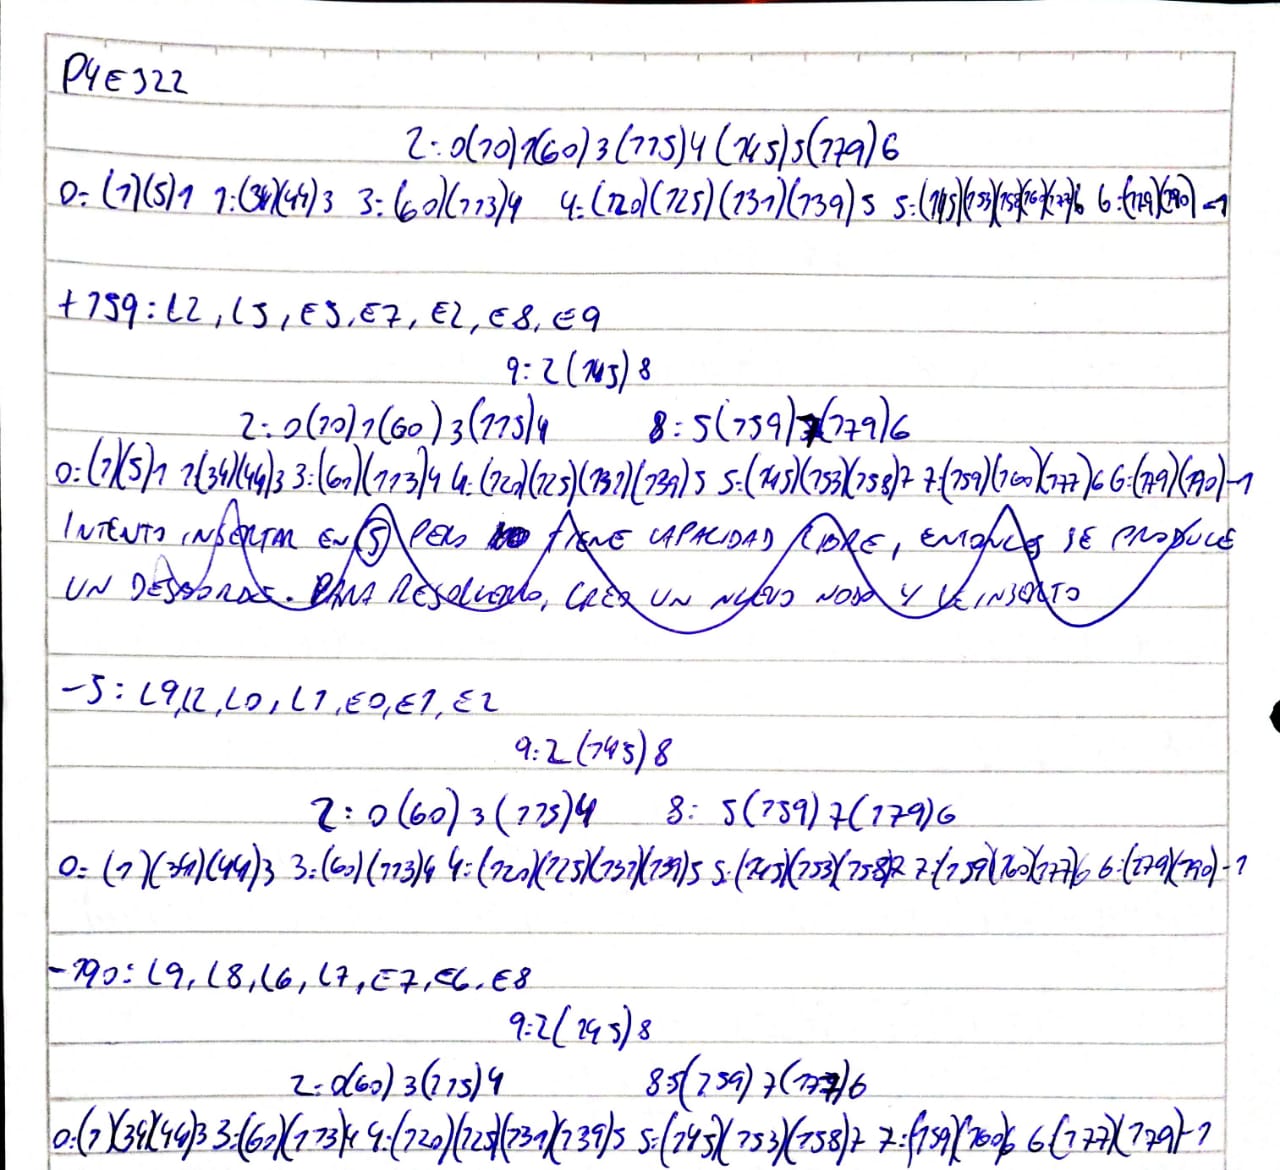 P4E322
2: 0(10)1(60)3(115)4(145)5(179)6
0: (1)(5)1 1:(34)(44)3 3:(60)(113)4 4:(120)(125)(131)(139)5 5:(145)(153)(158)(160)(177)6 6:(179)(190)-1
+159: L2, L5, E5, E7, E2, E8, E9
9: 2(145)8
2: 0(10)1(60)3(115)4 8: 5(159)7(179)6
0:(1)(5)1 1(34)(44)3 3:(60)(113)4 4:(120)(125)(131)(139)5 5:(145)(153)(158)7 7:(159)(160)(177)6 6:(179)(190)-1
INTENTO INSERTAR EN 5 PERO NO TIENE CAPACIDAD LIBRE, ENTONCES SE PRODUCE
UN DESBORDE. PARA RESOLVERLO, CREO UN NUEVO NODO Y LE INSERTO
-5: L9, L2, L0, L1, E0, E1, E2
9: 2(145)8
2: 0(60)3(115)4 8: 5(159)7(179)6
0: (1)(34)(44)3 3:(60)(113)4 4:(120)(125)(131)(139)5 5:(145)(153)(158)7 7:(159)(160)(177)6 6:(179)(190)-1
-190: L9, L8, L6, L7, E7, E6, E8
9:2(145)8
2: 0(60)3(115)4 8 5(159)7(177)6
0:(1)(34)(44)3 3:(60)(113)4 4:(120)(125)(131)(139)5 5:(145)(153)(158)7 7:(159)(160)6 6(177)(179)-1